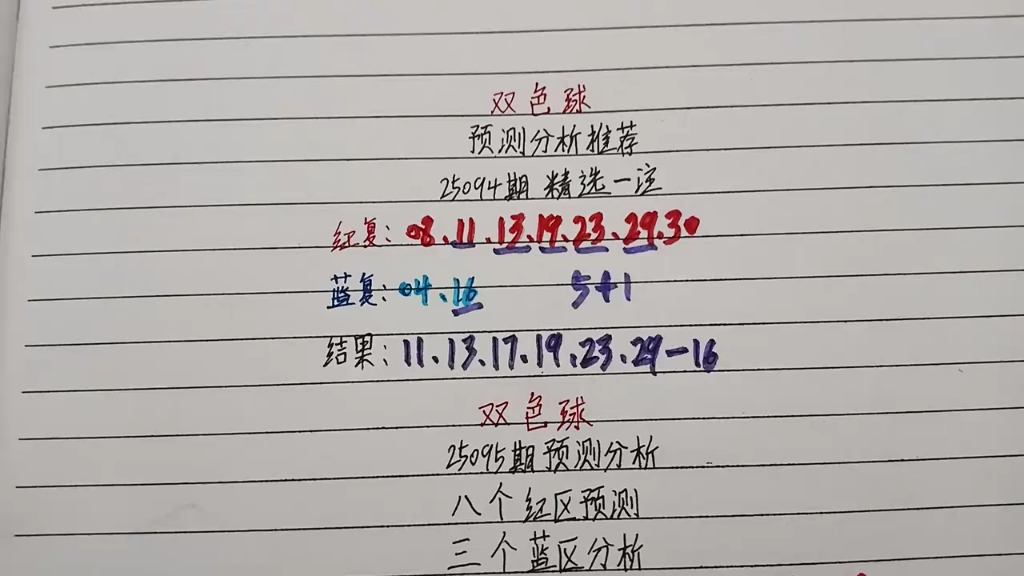 双色球
预测分析推荐
25094期 精选一注
红复: 08.11.13.19.23.29.30
蓝复: 04.16 5+1
结果: 11.13.17.19.23.29-16
双色球
25095期预测分析
八个红区预测
三个蓝区分析